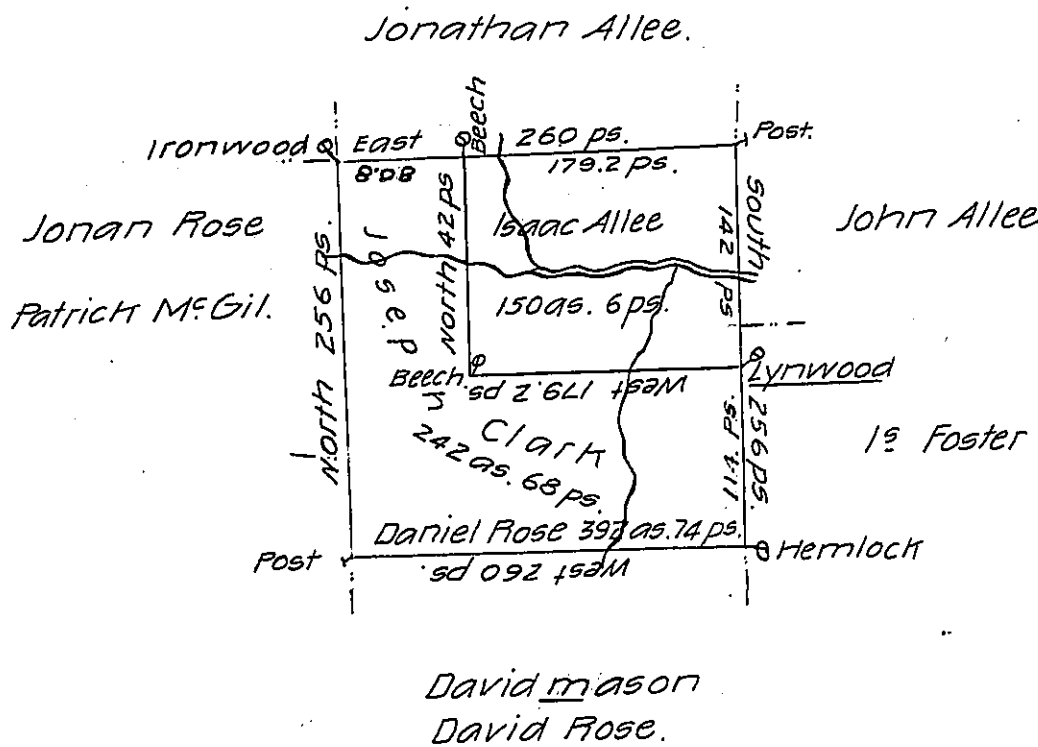 Jonathan Allee.
Beech
Ironwood
East
260 ps.
Post.
80.8
179.2 ps.
Jonan Rose
Patrick McGil.
North 256 ps.
North 42 ps
Isaac Allee
150 as. 6 ps.
South
142 ps
John Allee
Beech.
West 179.2 ps
Lynwood
Joseph Clark
242 as. 68 ps.
114 ps.
256 ps.
1s Foster
Daniel Rose 392 as. 74 ps.
Post
West 260 ps.
Hemlock
David mason
David Rose.